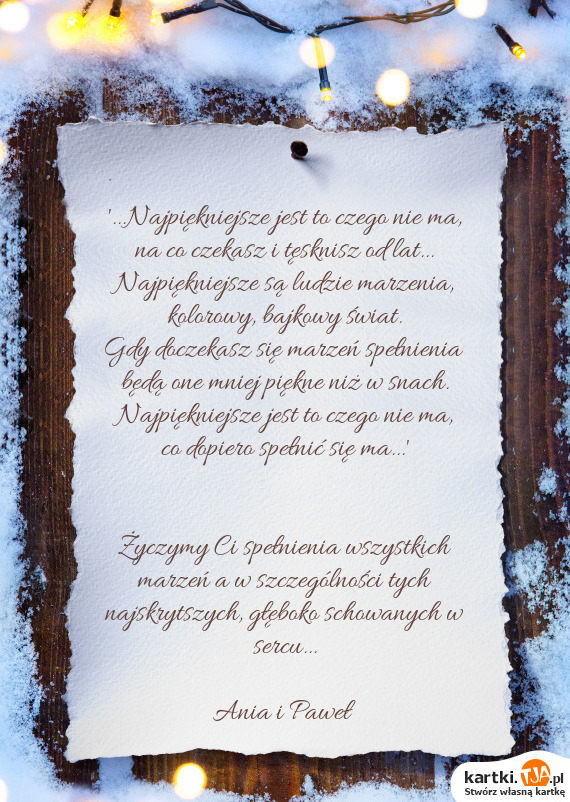 '...Najpiękniejsze jest to czego nie ma,
na co czekasz i tęsknisz od lat...
Najpiękniejsze są ludzie marzenia,
kolorowy, bajkowy świat.
Gdy doczekasz się marzeń spełnienia
będą one mniej piękne niż w snach.
Najpiękniejsze jest to czego nie ma,
co dopiero spełnić się ma...'
Życzymy Ci spełnienia wszystkich
marzeń a w szczególności tych
najskrytszych, głęboko schowanych w
sercu...
Ania i Paweł
kartki.TJA.pl
Stwórz własną kartkę